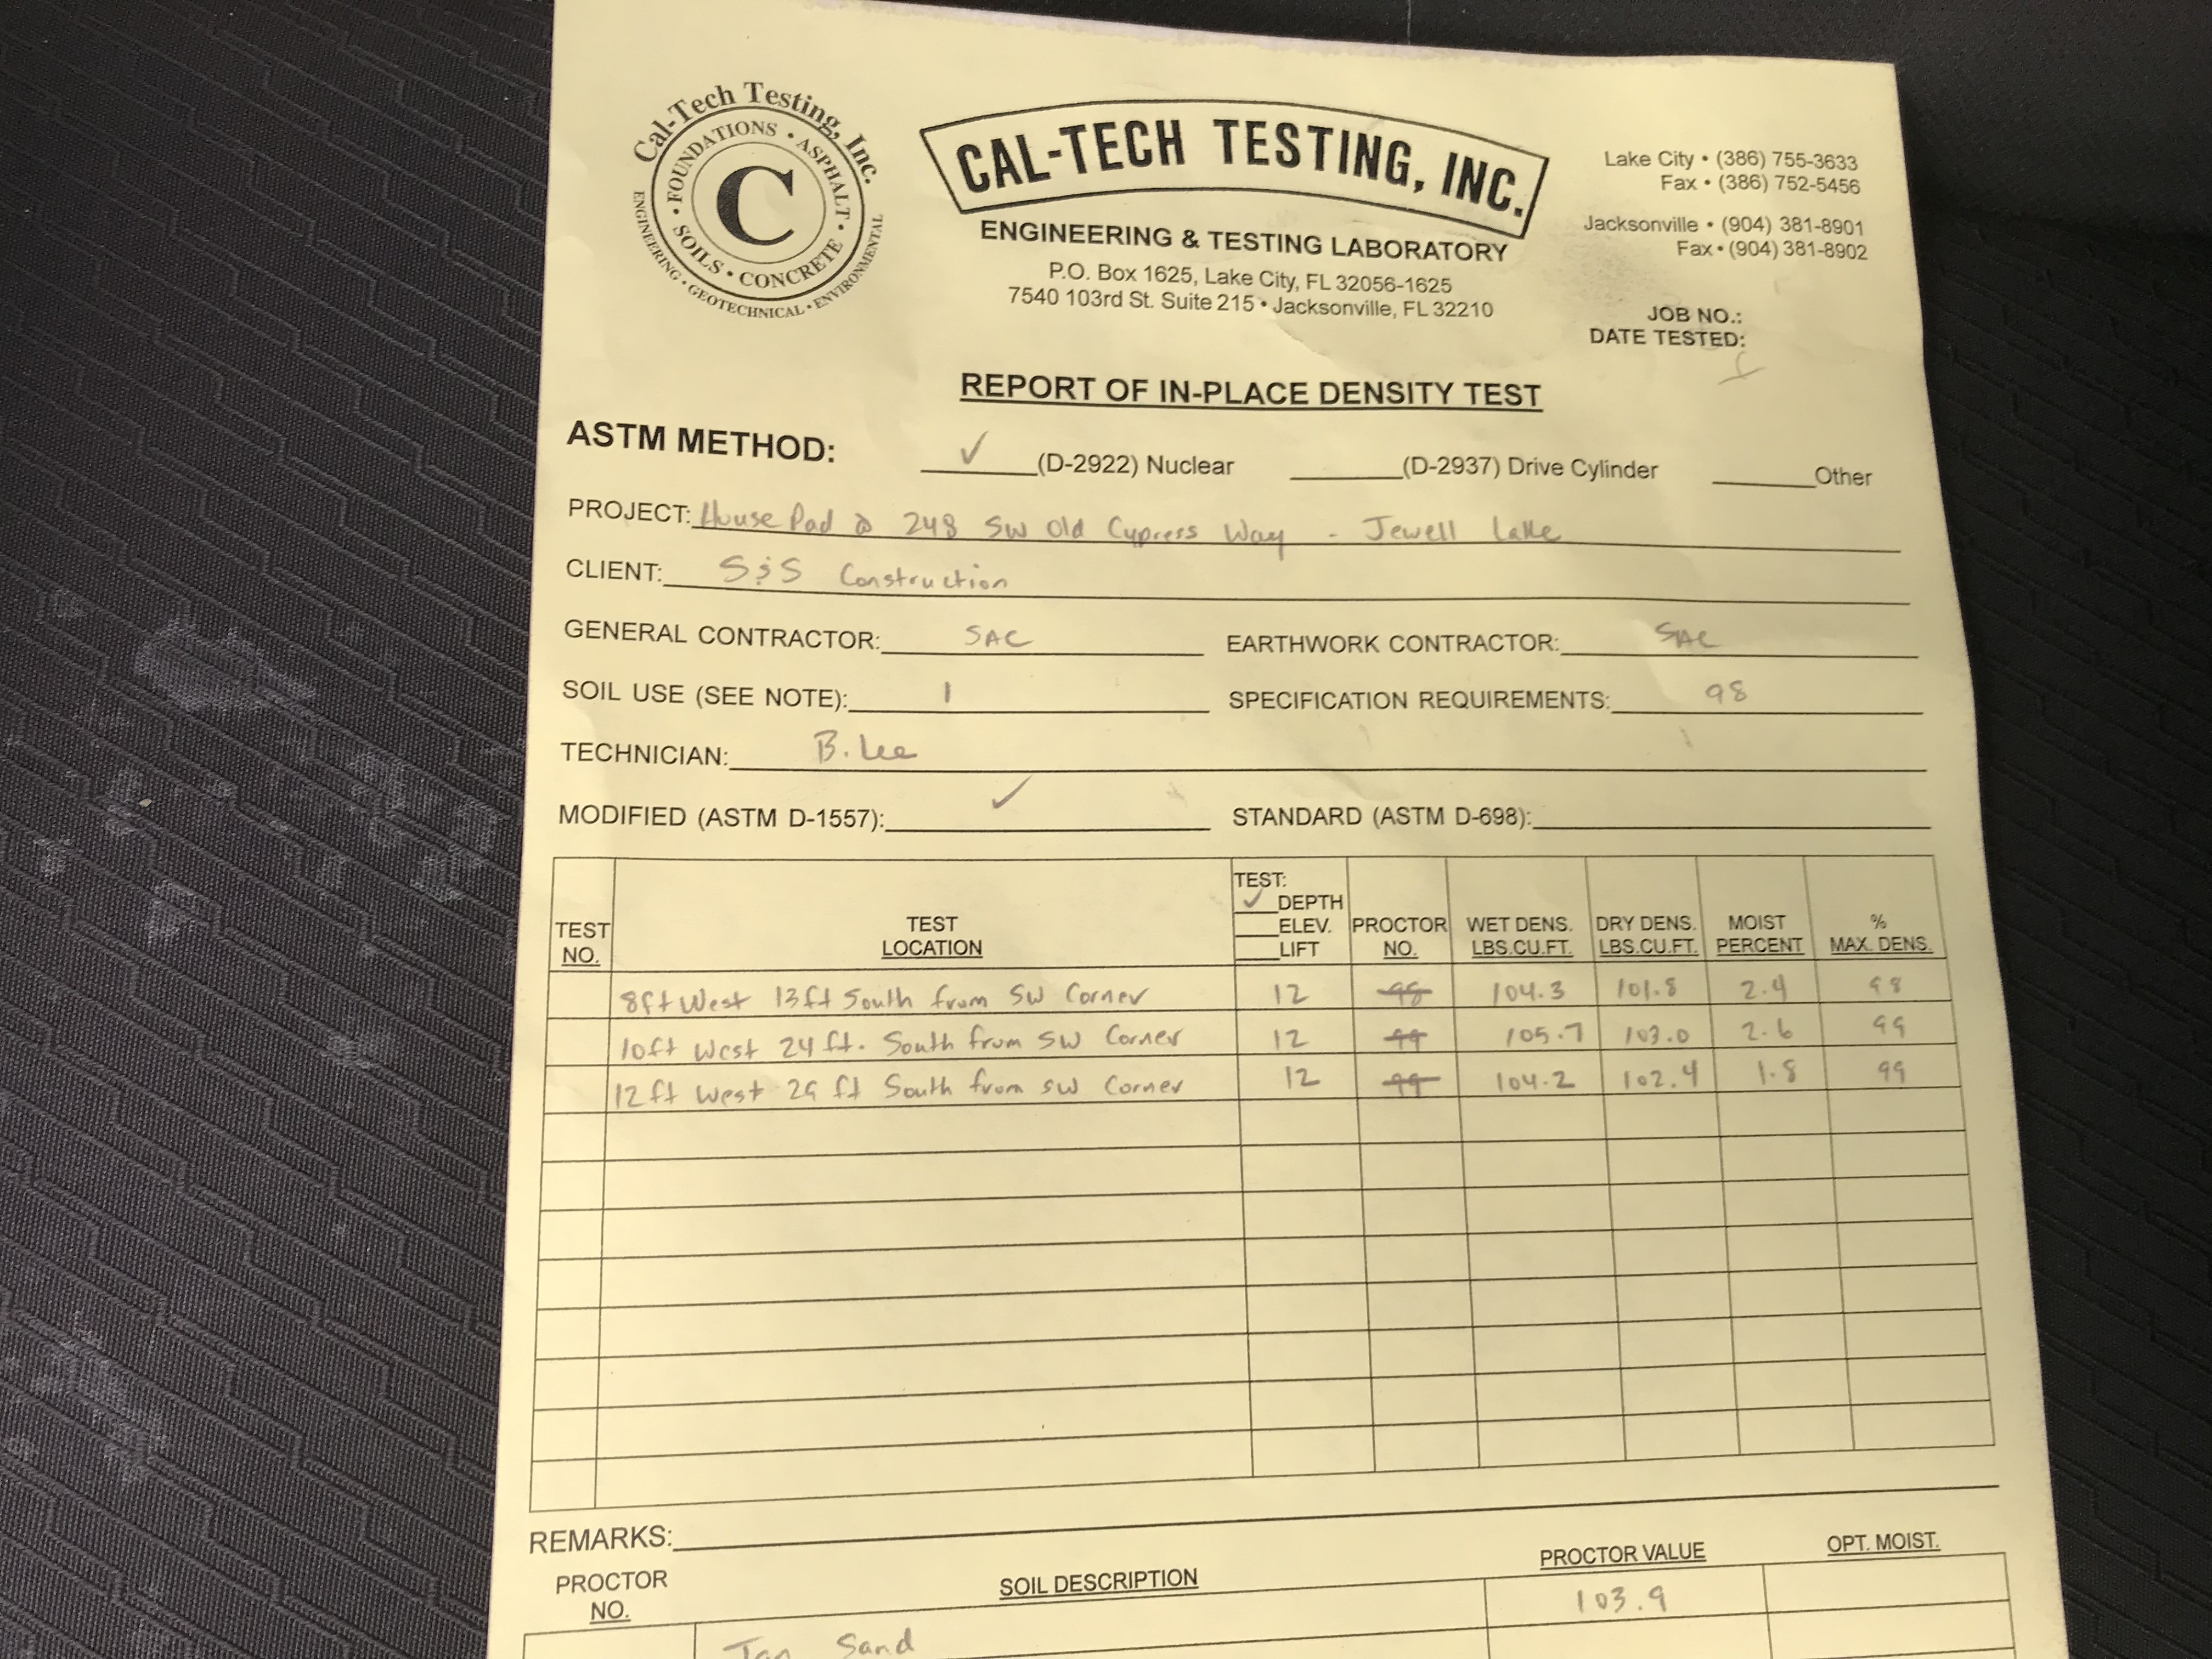 Cal-Tech Testing, Inc.
FOUNDATIONS • ASPHALT • CONCRETE • SOILS •
C
ENGINEERING • GEOTECHNICAL • ENVIRONMENTAL
CAL-TECH TESTING, INC.
ENGINEERING & TESTING LABORATORY
P.O. Box 1625, Lake City, FL 32056-1625
7540 103rd St. Suite 215 • Jacksonville, FL 32210
Lake City • (386) 755-3633
Fax • (386) 752-5456
Jacksonville • (904) 381-8901
Fax • (904) 381-8902
JOB NO.:
DATE TESTED:
REPORT OF IN-PLACE DENSITY TEST
ASTM METHOD: ✓ (D-2922) Nuclear (D-2937) Drive Cylinder Other
PROJECT: House Pad @ 248 SW Old Cypress Way - Jewell Lake
CLIENT: S&S Construction
GENERAL CONTRACTOR: SAC EARTHWORK CONTRACTOR: SAC
SOIL USE (SEE NOTE): 1 SPECIFICATION REQUIREMENTS: 98
TECHNICIAN: B. Lee
MODIFIED (ASTM D-1557): ✓ STANDARD (ASTM D-698):
TEST NO. TEST LOCATION TEST: ✓ DEPTH ELEV. LIFT PROCTOR NO. WET DENS. LBS.CU.FT. DRY DENS. LBS.CU.FT. MOIST PERCENT % MAX. DENS.
8ft West 13ft South from SW Corner 12 98 104.3 101.8 2.4 98
10ft West 24 ft. South from SW Corner 12 99 105.7 103.0 2.6 99
12ft West 29 ft South from SW Corner 12 99 104.2 102.4 1.8 99
REMARKS:
PROCTOR NO. SOIL DESCRIPTION PROCTOR VALUE OPT. MOIST.
103.9
Tan Sand